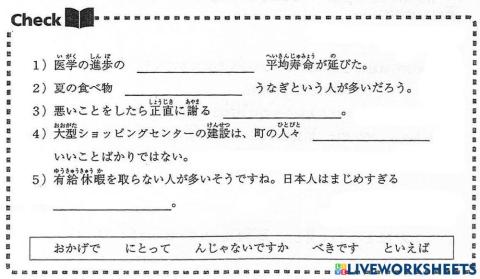 Check
1）医学の進歩の ＿＿＿＿＿＿ 平均寿命が延びた。
2）夏の食べ物 ＿＿＿＿＿＿ うなぎという人が多いだろう。
3）悪いことをしたら正直に謝る ＿＿＿＿＿＿。
4）大型ショッピングセンターの建設は、町の人々 ＿＿＿＿＿＿
いいことばかりではない。
5）有給休暇を取らない人が多いそうですね。日本人はまじめすぎる
＿＿＿＿＿＿。
おかげで にとって んじゃないですか べきです といえば
LIVEWORKSHEETS